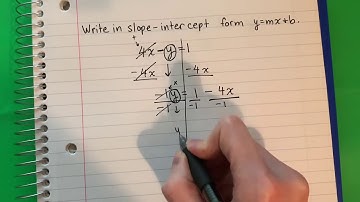 Write in slope-intercept form y=mx+b.
+
4x - y = 1
-4x ↓ -4x
-1y = 1 - 4x
-1 ↓ -1 -1
y